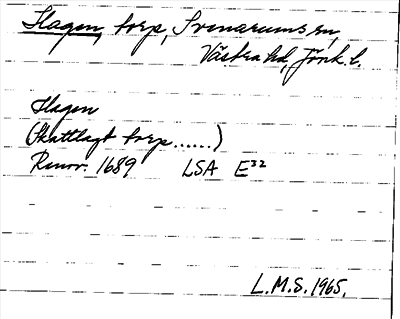 Hagen, torp, Svenarums sn,
Västra hd, Jönk. l.
Hagen
(Skattlagt torp ......)
Renov. 1689 LSA E³²
L.M.S. 1965.